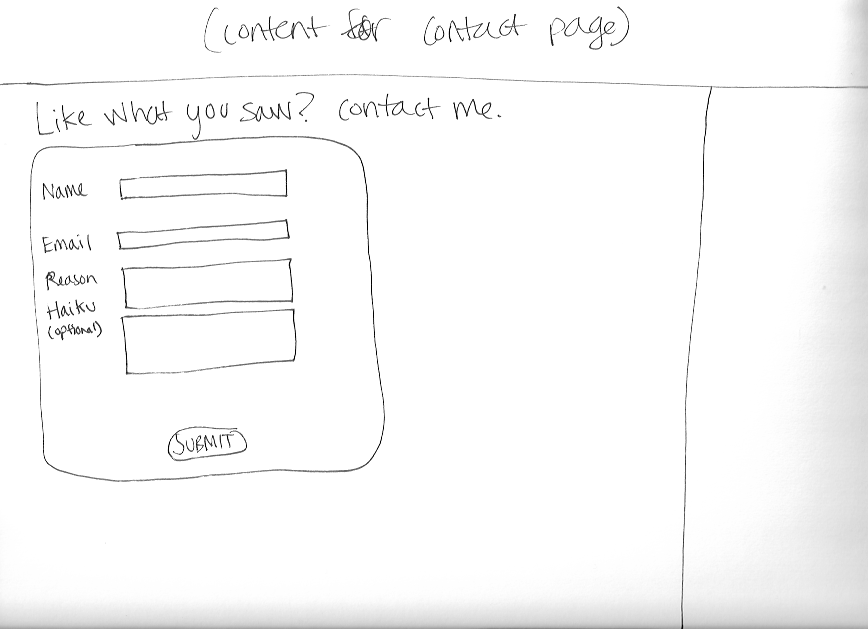 (content for contact page)
Like what you saw? contact me.
Name
Email
Reason
Haiku
(optional)
SUBMIT